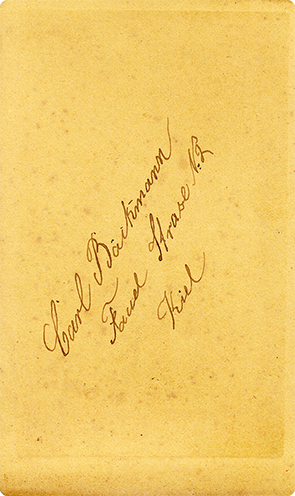 Carl Bäckmann
Faud Strase N: 2
Kiel